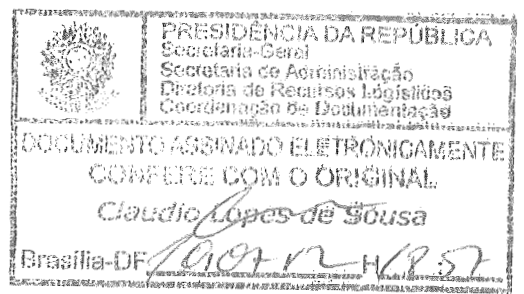 PRESIDÊNCIA DA REPÚBLICA
Secretaria-Geral
Secretaria de Administração
Diretoria de Recursos Logísticos
Coordenação de Documentação
DOCUMENTO ASSINADO ELETRONICAMENTE
CONFERE COM O ORIGINAL
Claudio Lopes de Sousa
Brasília-DF H 18:57